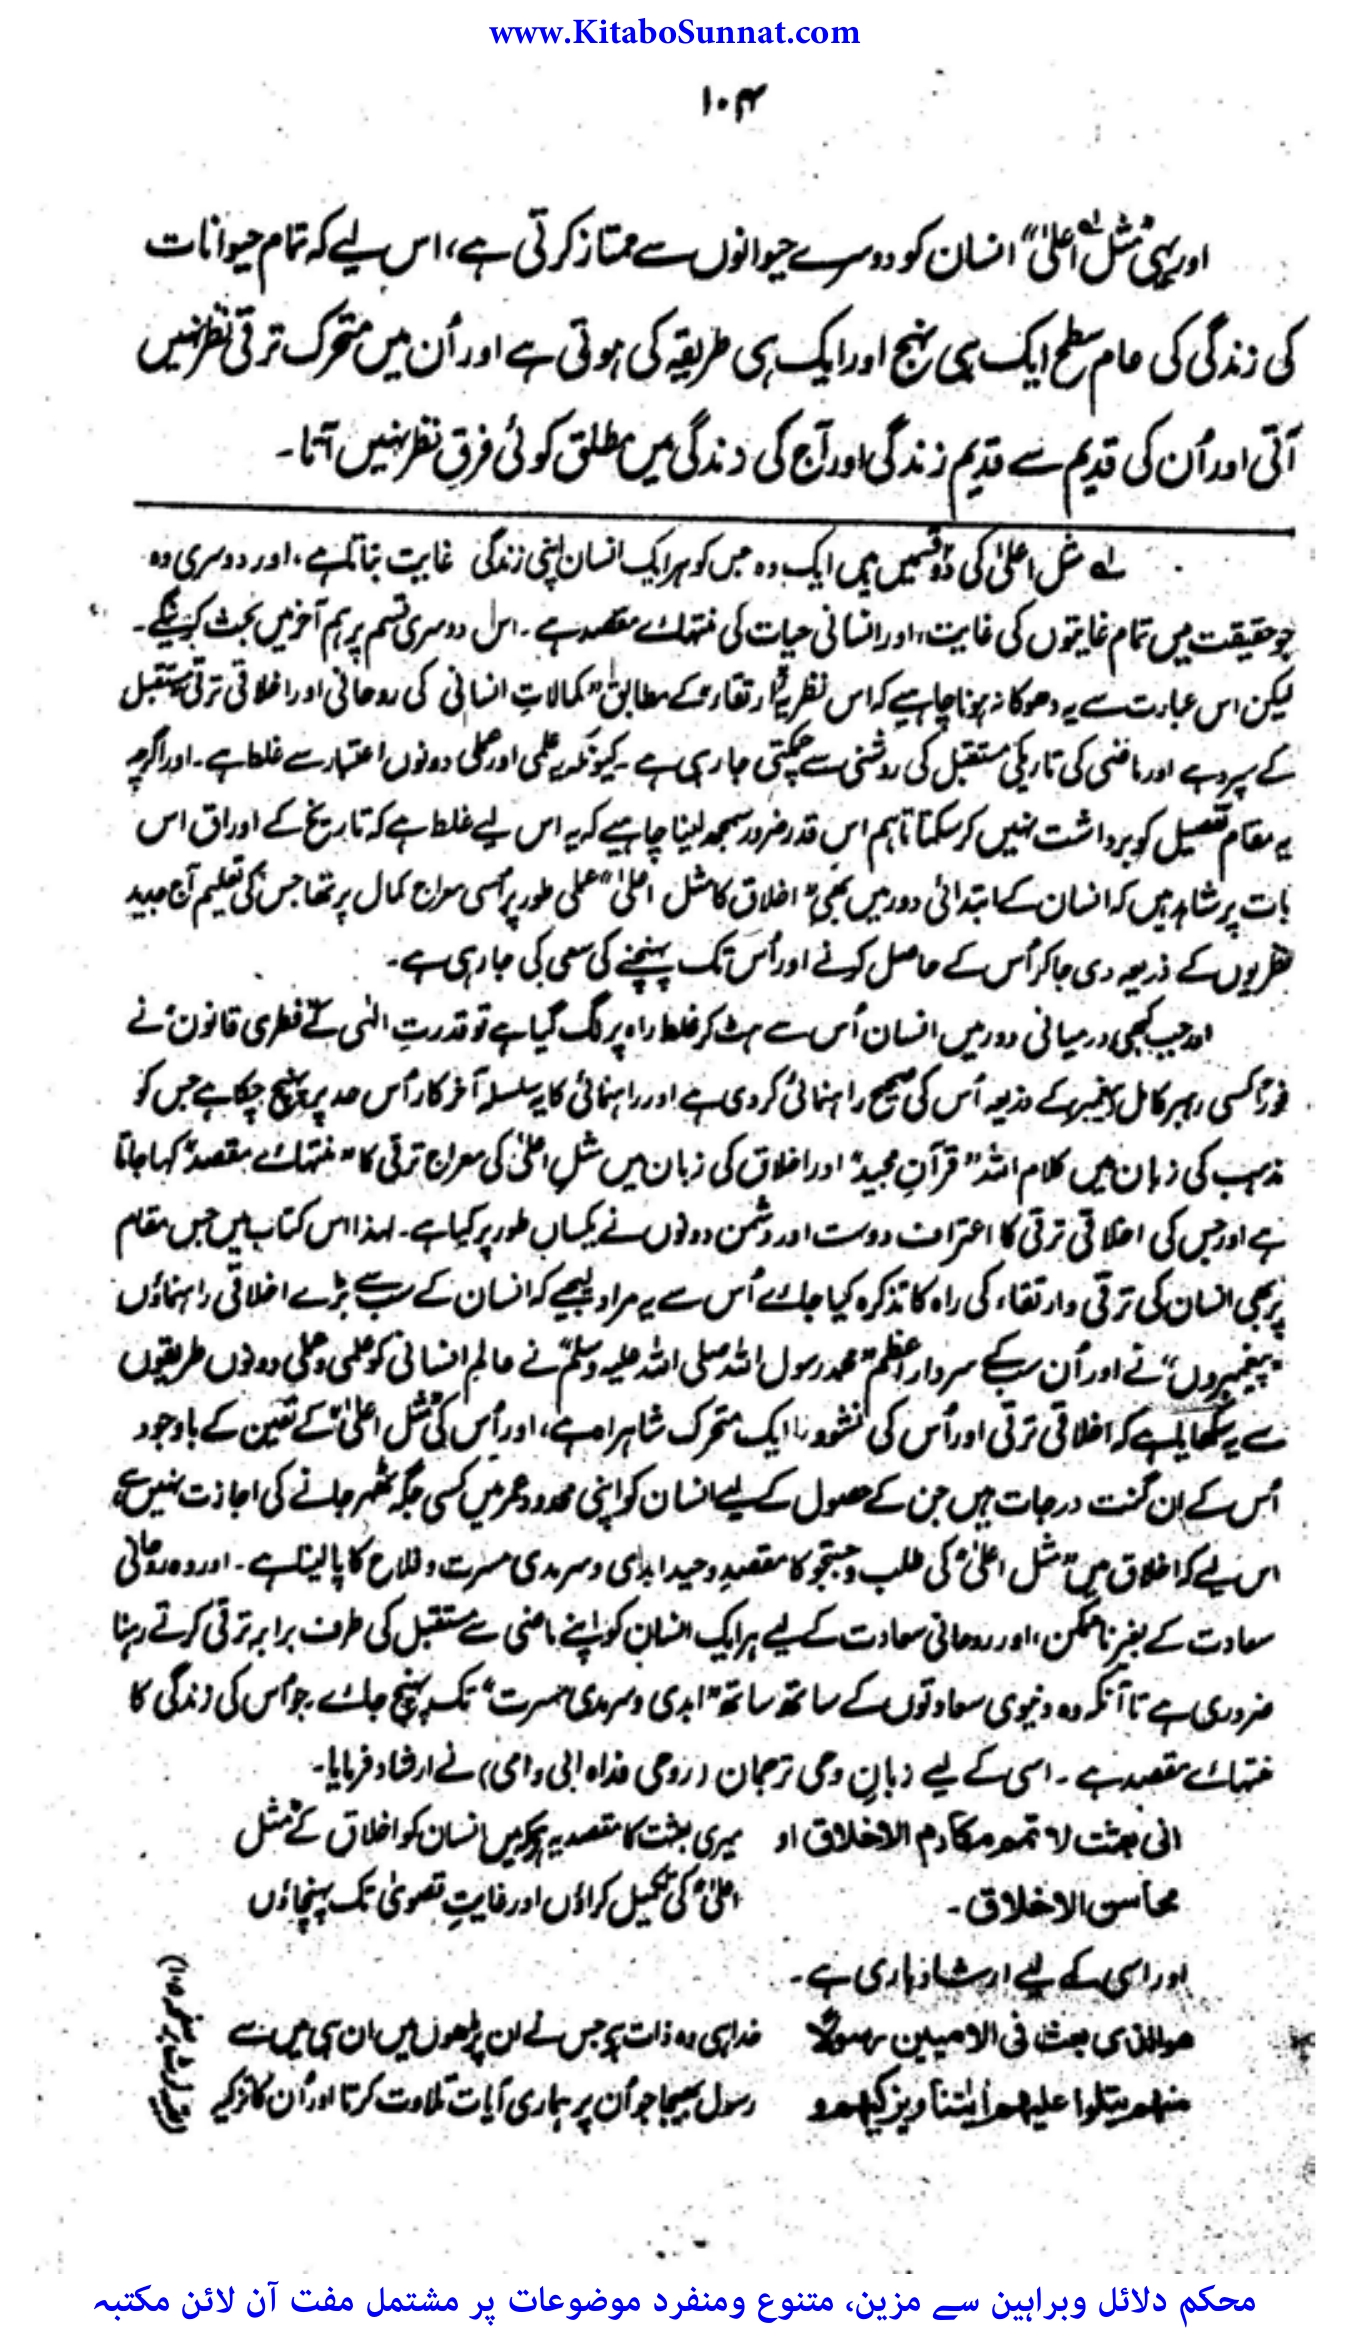 www.KitaboSunnat.com
۱۰۴
اور یہی "مثل اعلیٰ" انسان کو دوسرے حیوانوں سے ممتاز کرتی ہے، اس لیے کہ تمام حیوانات
کی زندگی کی عام سطح ایک ہی نہج اور ایک ہی طریقہ کی ہوتی ہے اور اُن میں متحرک ترقی نظر نہیں
آتی اور اُن کی قدیم سے قدیم زندگی اور آج کی زندگی میں مطلق کوئی فرق نظر نہیں آتا۔
لے مثل اعلیٰ کی دو قسمیں ہیں ایک وہ جس کو ہر ایک انسان اپنی زندگی غایت بناتا ہے، اور دوسری وہ
جو حقیقت میں تمام غایتوں کی غایت، اور انسانی حیات کی منتہائے مقصد ہے۔ اس دوسری قسم پر ہم آخر میں بحث کرینگے۔
لیکن اس عبارت سے یہ دھوکا نہ ہونا چاہیے کہ اس نظریۂ ارتقاء کے مطابق "کمالاتِ انسانی کی روحانی اور اخلاقی ترقی مستقبل
کے سپرد ہے اور ماضی کی تاریکی مستقبل کی روشنی سے چمکتی جا رہی ہے۔ کیونکہ یہ علمی اور عملی دونوں اعتبار سے غلط ہے۔ اور اگرچہ
یہ مقام تفصیل کو برداشت نہیں کر سکتا تاہم اس قدر ضرور سمجھ لینا چاہیے کہ یہ اس لیے غلط ہے کہ تاریخ کے اوراق اس
بات پر شاہد ہیں کہ انسان کے ابتدائی دور میں بھی "اخلاق کا مثل اعلیٰ" عملی طور پر اُسی معراج کمال پر تھا جس کی تعلیم آج جدید
نظریوں کے ذریعہ دی جا کر اُس کے حاصل کرنے اور اُس تک پہنچنے کی سعی کی جا رہی ہے۔
اور جب کبھی درمیانی دور میں انسان اُس سے ہٹ کر غلط راہ پر لگ گیا ہے تو قدرتِ الٰہی کے "فطری قانون" نے
فوراً کسی رہبر کامل پیغمبر کے ذریعہ اُس کی صحیح راہنمائی کر دی ہے اور راہنمائی کا یہ سلسلہ آخر کار اُس حد پر پہنچ چکا ہے جس کو
مذہب کی زبان میں کلام اللہ "قرآنِ مجید" اور اخلاق کی زبان میں مثلِ اعلیٰ کی معراج ترقی کا "منتہائے مقصد" کہا جاتا
ہے اور جس کی اخلاقی ترقی کا اعتراف دوست اور دشمن دونوں نے یکساں طور پر کیا ہے۔ لہذا اس کتاب میں جس مقام
پر بھی انسان کی ترقی و ارتقاء کی راہ کا تذکرہ کیا جائے اُس سے یہ مراد لیجیے کہ انسان کے سب سے بڑے اخلاقی راہنماؤں
"پیغمبروں" نے اور اُن سب کے سردار اعظم "محمد رسول اللہ صلی اللہ علیہ وسلم" نے عالم انسانی کو علمی و عملی دونوں طریقوں
سے یہ سکھایا ہے کہ اخلاقی ترقی اور اُس کی نشوونما ایک متحرک شاہراہ ہے، اور اُس کی "مثل اعلیٰ" کے تعین کے باوجود
اُس کے ان گنت درجات ہیں جن کے حصول کے لیے انسان کو اپنی محدود عمر میں کسی جگہ ٹھہر جانے کی اجازت نہیں ہے
اس لیے کہ اخلاق میں "مثل اعلیٰ" کی طلب و جستجو کا مقصدِ وحید ابدی و سرمدی مسرت و فلاح کا پا لینا ہے۔ اور وہ روحانی
سعادت کے بغیر ناممکن، اور روحانی سعادت کے لیے ہر ایک انسان کو اپنے ماضی سے مستقبل کی طرف برابر ترقی کرتے رہنا
ضروری ہے تا آنکہ وہ دنیوی سعادتوں کے ساتھ ساتھ "ابدی و سرمدی مسرت" تک پہنچ جائے جو اُس کی زندگی کا
منتہائے مقصد ہے۔ اسی کے لیے زبانِ وحی ترجمان (روحی فداہ ابی و امی) نے ارشاد فرمایا۔
انی بعثت لاتمم مکارم الاخلاق او میری بعثت کا مقصد یہ ہے کہ میں انسان کو اخلاق کے "مثل
محاسن الاخلاق۔ اعلیٰ" کی تکمیل کراؤں اور غایتِ قصویٰ تک پہنچاؤں
اور اسی کے لیے ارشاد باری ہے۔
ھوالذی بعث فی الامیین رسولا خدا ہی وہ ذات ہے جس نے ان پڑھوں میں ان ہی میں سے
منھم یتلوا علیھم اٰیٰتنا ویزکیھم و رسول بھیجا جو اُن پر ہماری آیات تلاوت کرتا اور اُن کا تزکیہ
محکم دلائل وبراہین سے مزین، متنوع ومنفرد موضوعات پر مشتمل مفت آن لائن مکتبہ